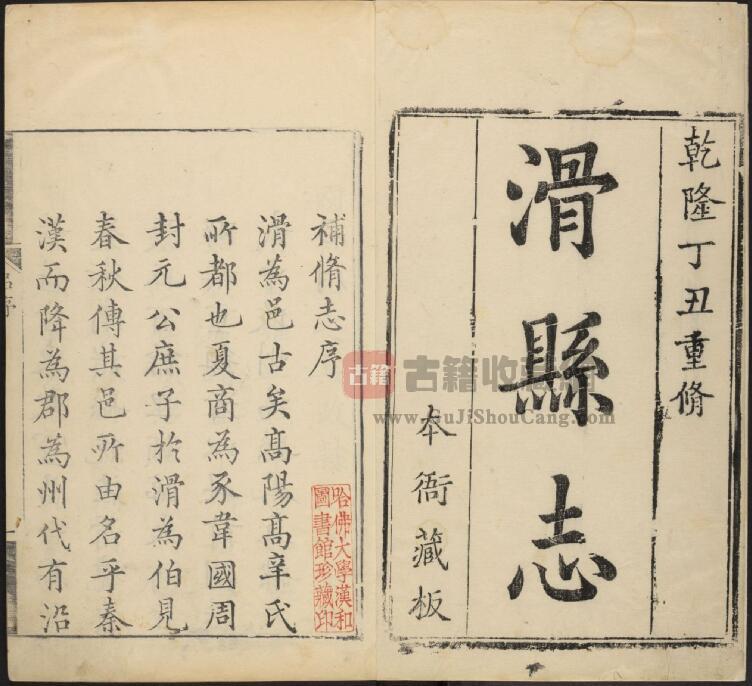 乾隆丁丑重脩
滑縣志
本衙藏板
補脩志序
滑為邑古矣高陽高辛氏
所都也夏商為豕韋國周
封元公庶子於滑為伯見
春秋傳其邑所由名乎秦
漢而降為郡為州代有沿
哈佛大學漢和
圖書館珍藏印
古籍 古籍收藏
www.GuJiShouCang.com